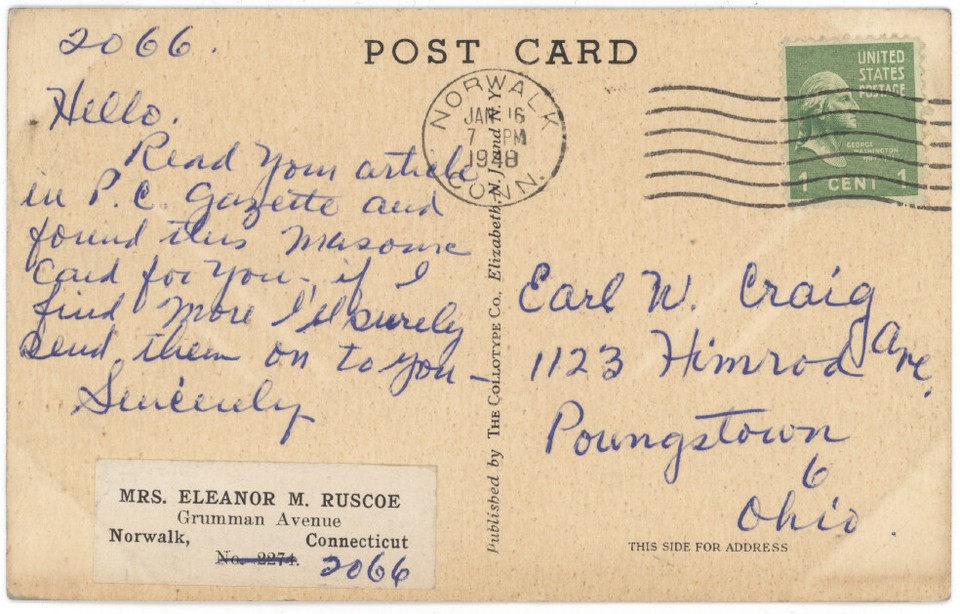 2066.
POST CARD
UNITED
STATES
POSTAGE
GEORGE
WASHINGTON
1 CENT 1
NORWALK
JAN 16
7 PM
1948
CONN.
Hello.
Read Your article
in P.C. Gazette and
found this Masonic
Card for You-, if I
find More I'll surely
send them on to you -
Sincerely
Published by THE COLLOTYPE Co., Elizabeth, N. J. and N. Y.
Earl W. Craig
1123 Himrod Ave.
Poungstown
6
Ohio.
MRS. ELEANOR M. RUSCOE
Grumman Avenue
Norwalk, Connecticut
No. 2274. 2066
THIS SIDE FOR ADDRESS